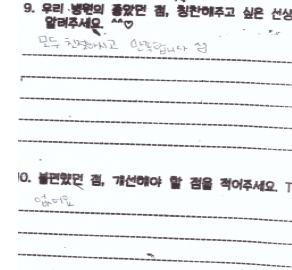 9. 우리 병원의 좋았던 점, 칭찬해주고 싶은 선생
알려주세요. ^^♡
모두 친절하시고 만족합니다 점
10. 불편했던 점, 개선해야 할 점을 적어주세요. T
없어요